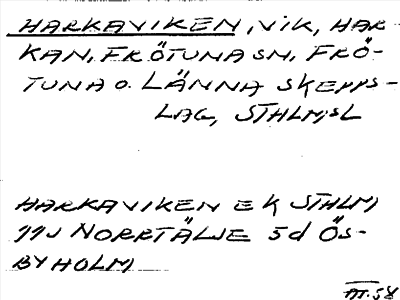 HARKAVIKEN, VIK, HAR-
KAN, FRÖTUNA SN, FRÖ-
TUNA O. LÄNNA SKEPPS-
LAG, STHLMSL
HARKAVIKEN EK STHLM
11J NORRTÄLJE 5d ÖS-
BYHOLM